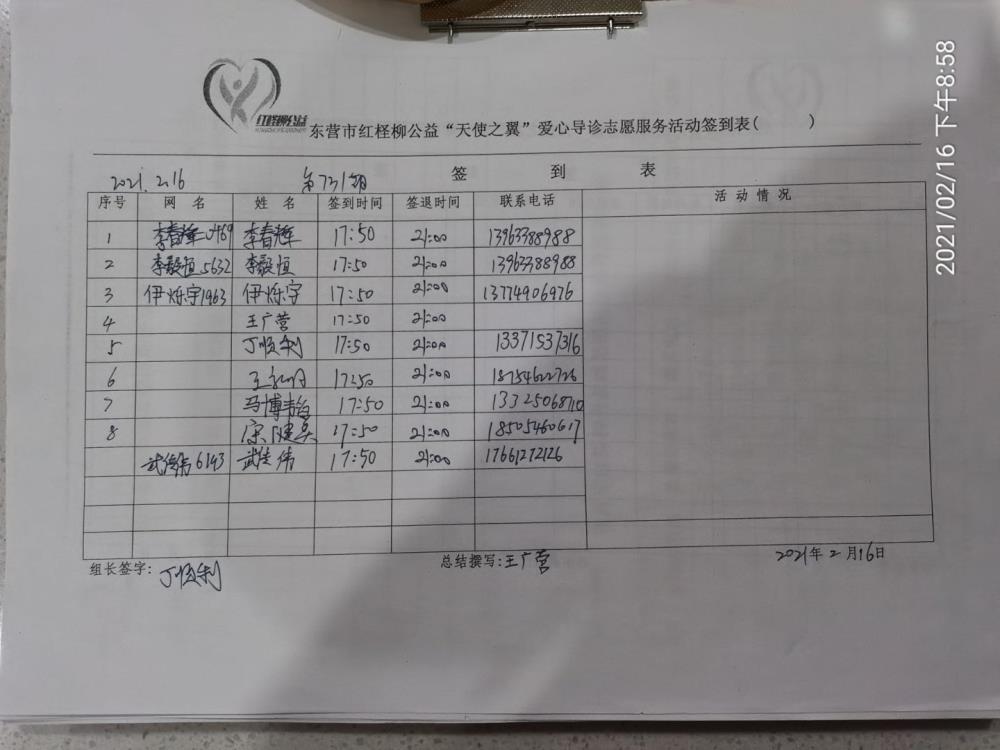 红柽柳公益
东营市红柽柳公益“天使之翼”爱心导诊志愿服务活动签到表( )
签 到 表
2021.2.16 第731期
序号 网名 姓名 签到时间 签退时间 联系电话 活动情况
1 李春辉0469 李春辉 17:50 21:00 13963388988
2 李毅恒5632 李毅恒 17:50 21:00 13963388988
3 伊烁宇1963 伊烁宇 17:50 21:00 13774906976
4 王广营 17:50 21:00
5 丁顺利 17:50 21:00 13371537316
6 17:50 21:00 18754622726
7 马博韬 17:50 21:00 13325068710
8 宋健英 17:50 21:00 18505460617
武佳伟6193 武佳伟 17:50 21:00 17661272126
组长签字: 丁顺利 总结撰写: 王广营 2021年2月16日
2021/02/16 下午8:58